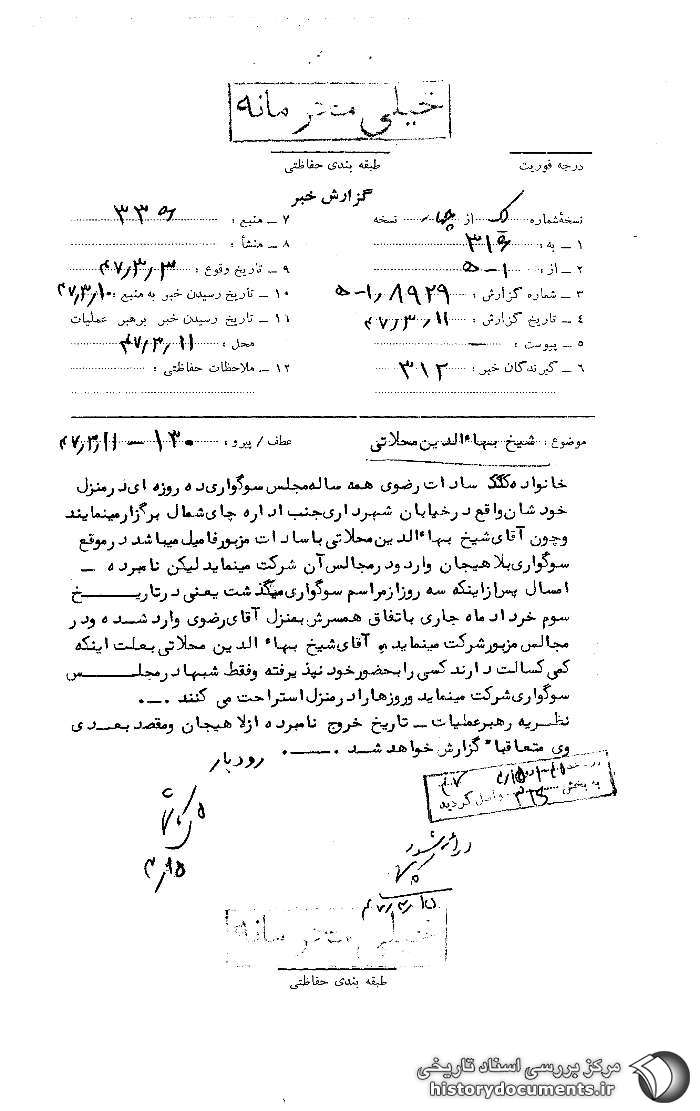 خیلی محرمانه
درجه فوریت
طبقه بندی حفاظتی
گزارش خبر
نسخهٔ شماره یک از چهار نسخه
۱ ــ به : ۳۱۶
۲ ــ از : ۱-ه
۳ ــ شماره گزارش : ۸۹۲۹/ه۱
۴ ــ تاریخ گزارش : ۴۷/۳/۱۱
۵ ــ پیوست : ــ
۶ ــ گیرندگان خبر : ۳۱۲
۷ ــ منبع : ۳۳۶
۸ ــ منشأ :
۹ ــ تاریخ وقوع : ۴۷/۳/۳
۱۰ ــ تاریخ رسیدن خبر به منبع : ۴۷/۳/۱۰
۱۱ ــ تاریخ رسیدن خبر برهبر عملیات
محل : ۴۷/۳/۱۱
۱۲ ــ ملاحظات حفاظتی :
موضوع : شیخ بهاءالدین محلاتی
عطف / پیرو : ۱۳۰ــ ۴۷/۳/۱۱
خانواده سادات رضوی همه ساله مجلس سوگواری ده روزه ای در منزل
خودشان واقع در خیابان شهرداری جنب اداره چای شمال برگزار مینمایند
وچون آقای شیخ بهاءالدین محلاتی با سادات مزبور فامیل میباشد در موقع
سوگواری بلاهیجان وارد ودر مجالس آن شرکت مینماید لیکن نامبرده ــ
امسال پس از اینکه سه روز از مراسم سوگواری میگذشت یعنی در تاریـــخ
سوم خرداد ماه جاری باتفاق همسرش بمنزل آقای رضوی وارد شـــده ودر
مجالس مزبور شرکت مینماید و آقای شیخ بهاء الدین محلاتی بعلت اینکه
کمی کسالت دارند کسی را بحضور خود نپذیرفته وفقط شبها در مجلـــس
سوگواری شرکت مینماید وروزها را در منزل استراحت می کنند .ــ.
نظریه رهبر عملیات ــ تاریخ خروج نامبرده از لاهیجان ومقصد بعــدی
وی متعاقباً گزارش خواهد شد .ــــ.
رودبار
به بخش ۳۱۶ واصل گردید
۳/۱۵
۴۷/۳/۱۵
خیلی محرمانه
طبقه بندی حفاظتی
مرکز بررسی اسناد تاریخی
historydocuments.ir